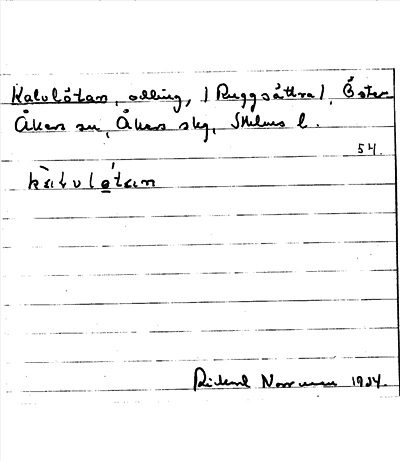 Kalvlötan, odling, | Ruggsättra |, Öster-
Åkers sn, Åkers skg, Sthlms l.
54.
Rickard Norrman 1934.